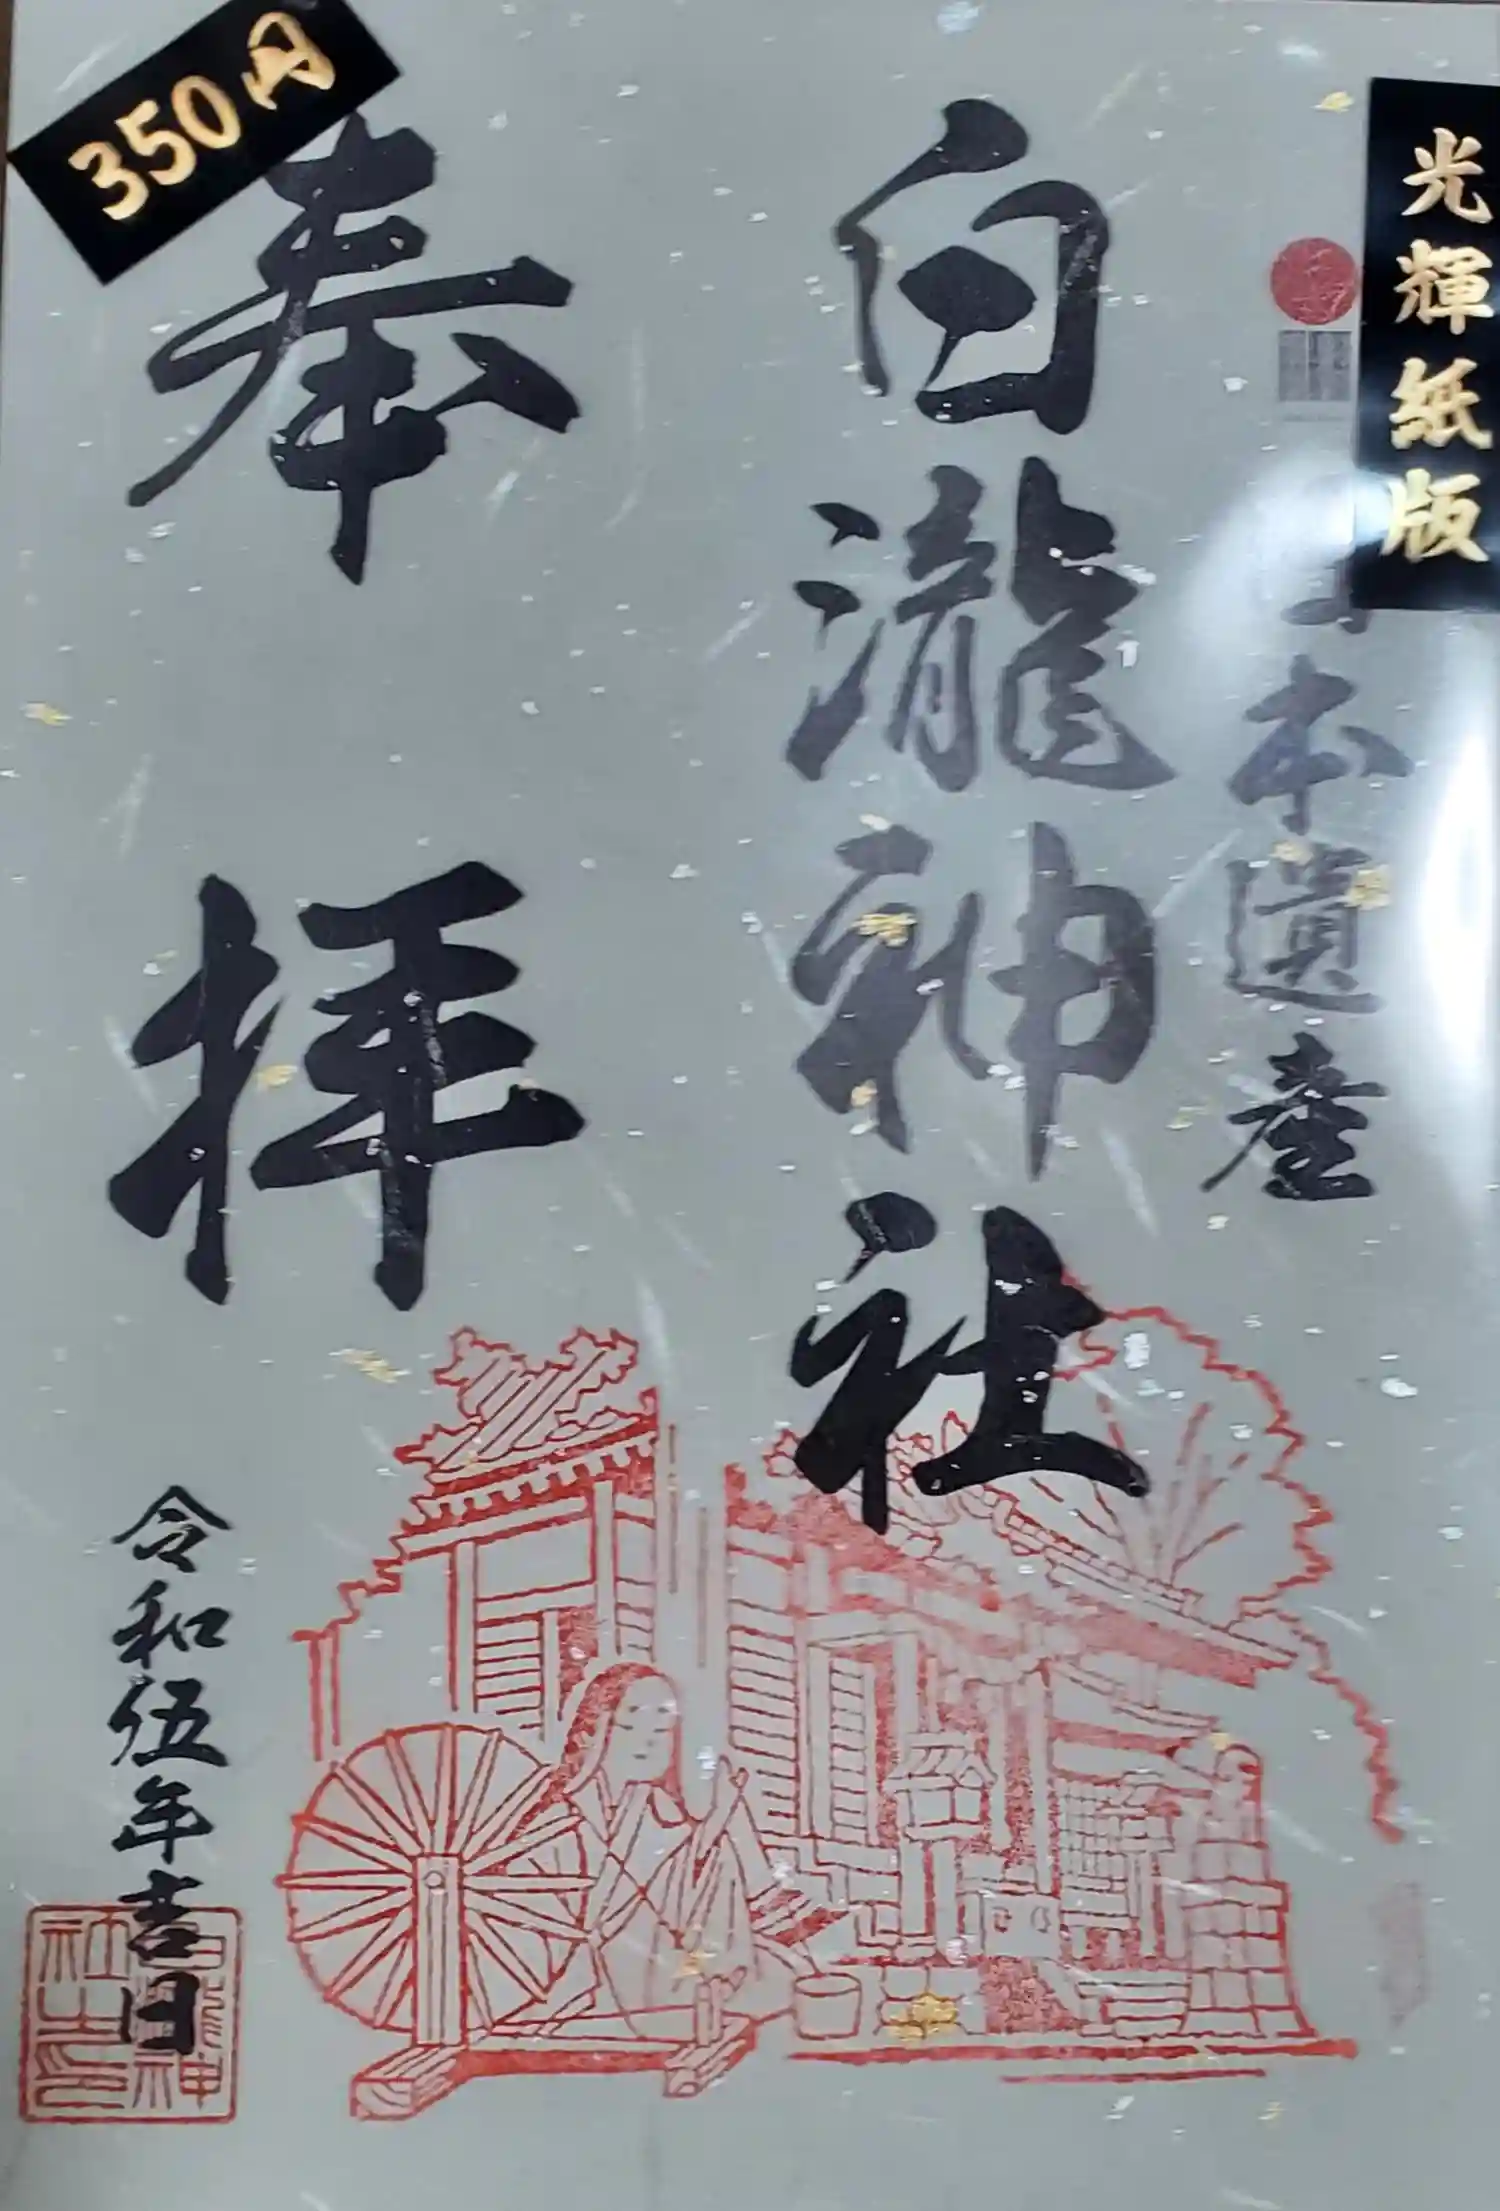 350円
光輝紙版
日本遺産
白瀧神社
奉拝
令和伍年吉日
白瀧神社之印